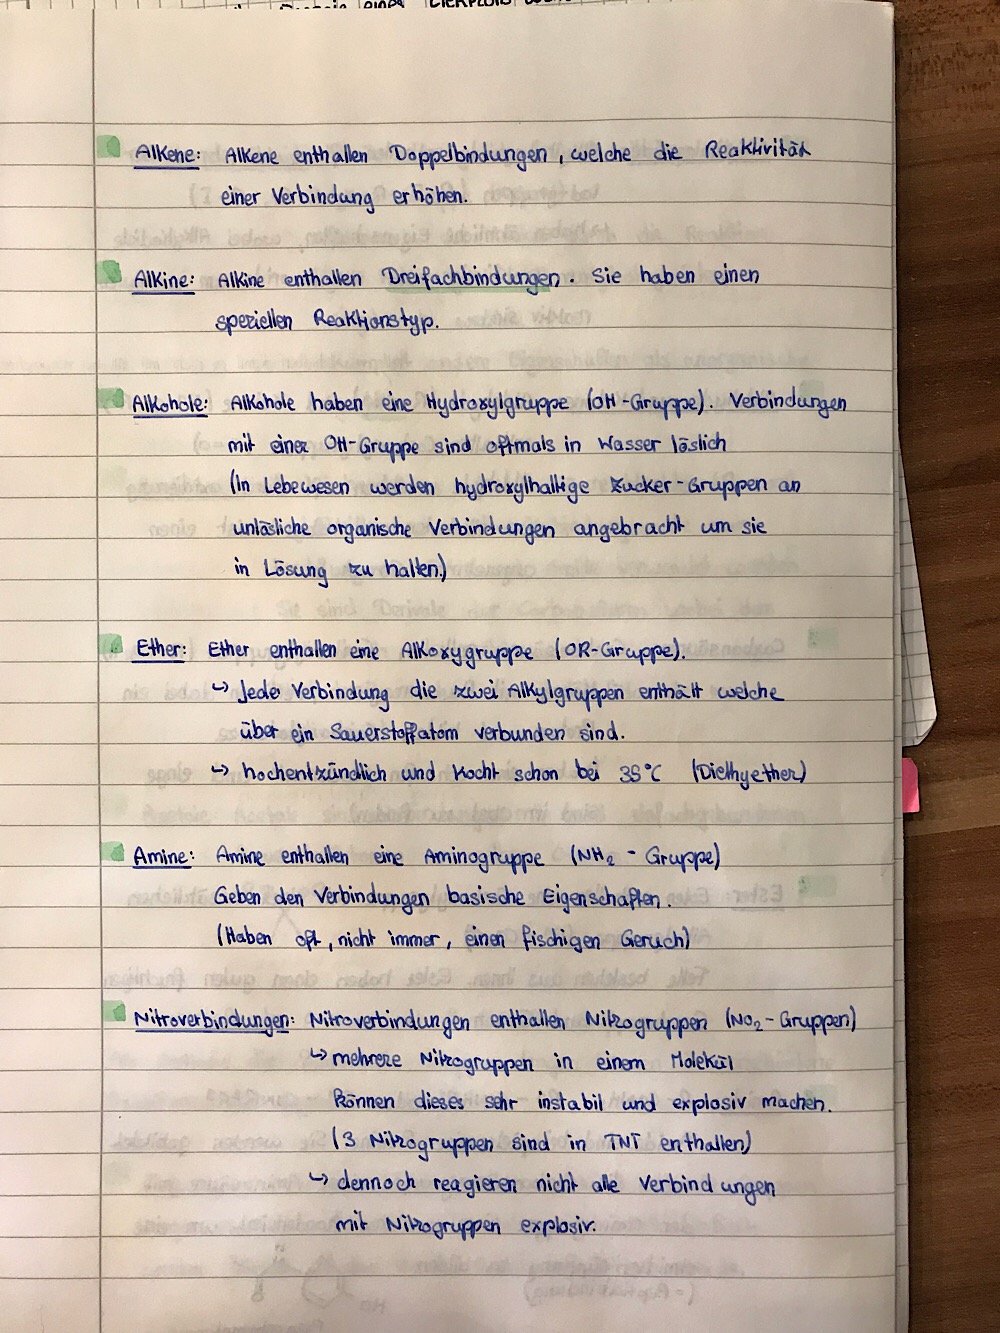 Alkene: Alkene enthalten Doppelbindungen, welche die Reaktivität
einer Verbindung erhöhen.
Alkine: Alkine enthalten Dreifachbindungen. Sie haben einen
speziellen Reaktionstyp.
Alkohole: Alkohole haben eine Hydroxylgruppe (OH-Gruppe). Verbindungen
mit einer OH-Gruppe sind oftmals in Wasser löslich
(In Lebewesen werden hydroxylhaltige Zucker-Gruppen an
unlösliche organische Verbindungen angebracht um sie
in Lösung zu halten.)
Ether: Ether enthalten eine Alkoxygruppe (OR-Gruppe).
↳ Jede Verbindung die zwei Alkylgruppen enthält welche
über ein Sauerstoffatom verbunden sind.
↳ hochentzündlich und kocht schon bei 35°C (Diethyether)
Amine: Amine enthalten eine Aminogruppe (NH₂ - Gruppe)
Geben den Verbindungen basische Eigenschaften.
(Haben oft, nicht immer, einen fischigen Geruch)
Nitroverbindungen: Nitroverbindungen enthalten Nitrogruppen (NO₂-Gruppen)
↳ mehrere Nitrogruppen in einem Molekül
können dieses sehr instabil und explosiv machen.
(3 Nitrogruppen sind in TNT enthalten)
↳ dennoch reagieren nicht alle Verbindungen
mit Nitrogruppen explosiv.